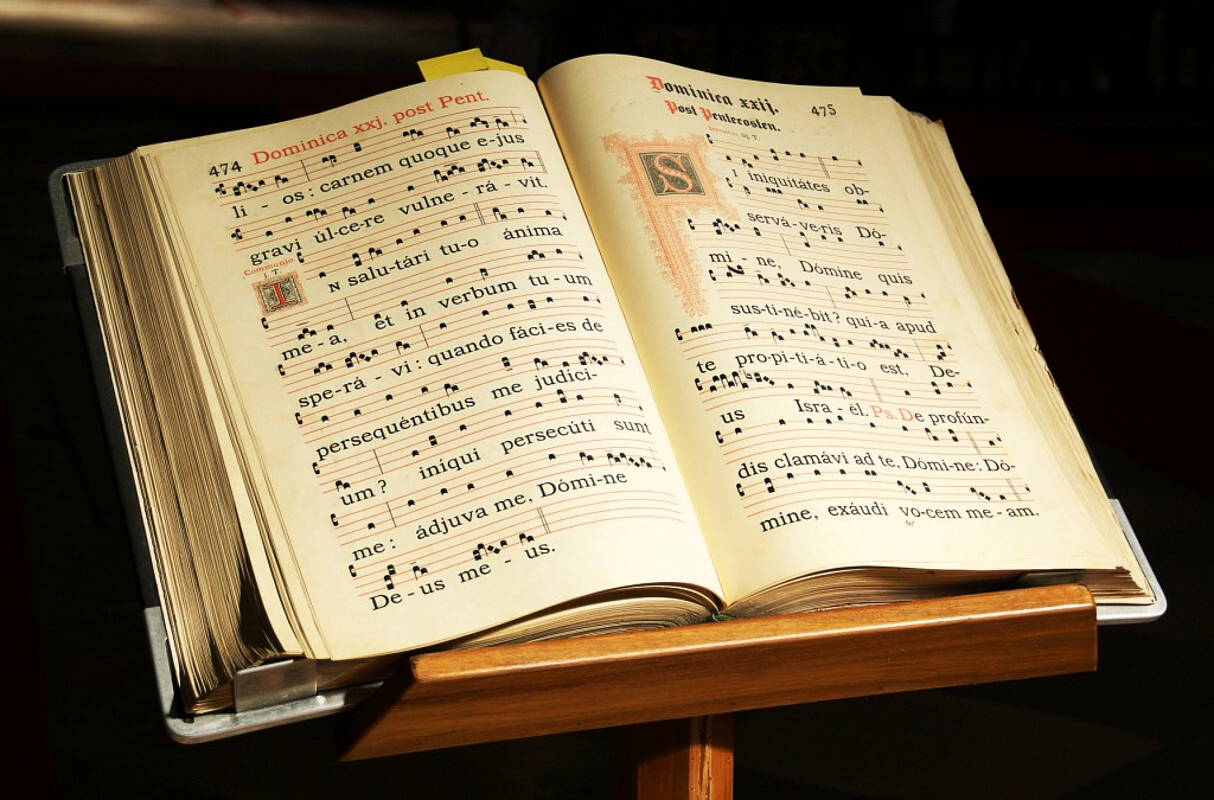 474 Dominica xxj. post Pent.
li - os: carnem quoque e-jus
gravi úl-ce-re vulne - rá - vit.
Communio.
j. T.
IN salu-tári tu-o ánima
me - a, et in verbum tu - um
spe-rá - vi: quando fáci-es de
persequéntibus me judíci-
um? iníqui persecúti sunt
me: ádjuva me, Dómi-ne
De-us me - us.
Dominica xxij. 475
Post Pentecosten.
Introitus iij. T.
SI iniquitátes ob-
servá-ve-ris Dó-
mi - ne, Dómine quis
sus-ti-né-bit? qui-a apud
te pro-pi-ti-á-ti-o est, De-
us Isra - ël. Ps. De profún-
dis clamávi ad te, Dómi-ne: Dó-
mine, exáudi vo-cem me - am.